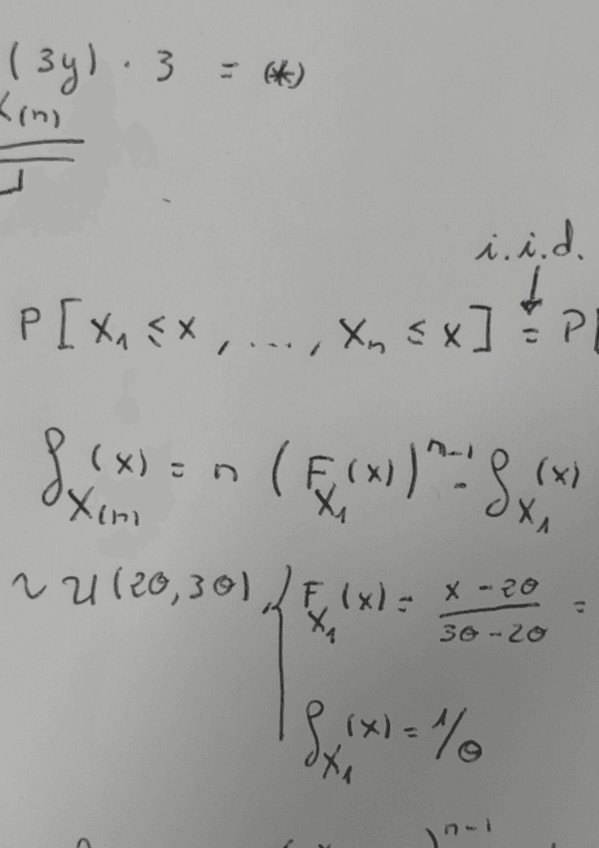 (3y) · 3 = (*)
X(n)
i.i.d.
↓
P[X₁ ≤ x, ..., Xₙ ≤ x] = P[
f_X(n)(x) = n (F_X₁(x))ⁿ⁻¹ · f_X₁(x)
~ U(2θ, 3θ), { F_X₁(x) = (x - 2θ)/(3θ - 2θ) =
f_X₁(x) = 1/θ
)ⁿ⁻¹